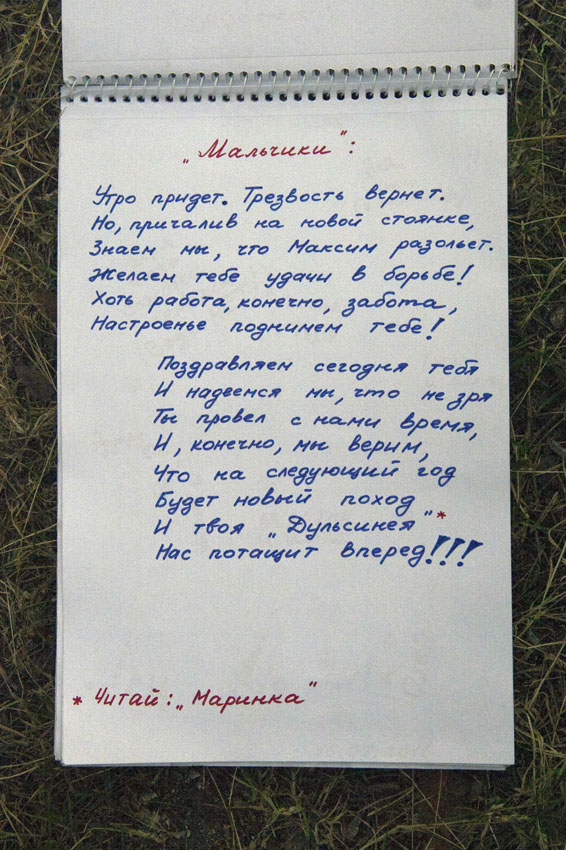 „Мальчики“:
Утро придет. Трезвость вернет.
Но, причалив на новой стоянке,
Знаем мы, что Максим разольет.
Желаем тебе удачи в борьбе!
Хоть работа, конечно, забота,
Настроенье поднимем тебе!
Поздравляем сегодня тебя
И надеемся мы, что не зря
Ты провел с нами время,
И, конечно, мы верим,
Что на следующий год
Будет новый поход
И твоя „Дульсинея“*
Нас потащит вперед!!!
* Читай: „Маринка“